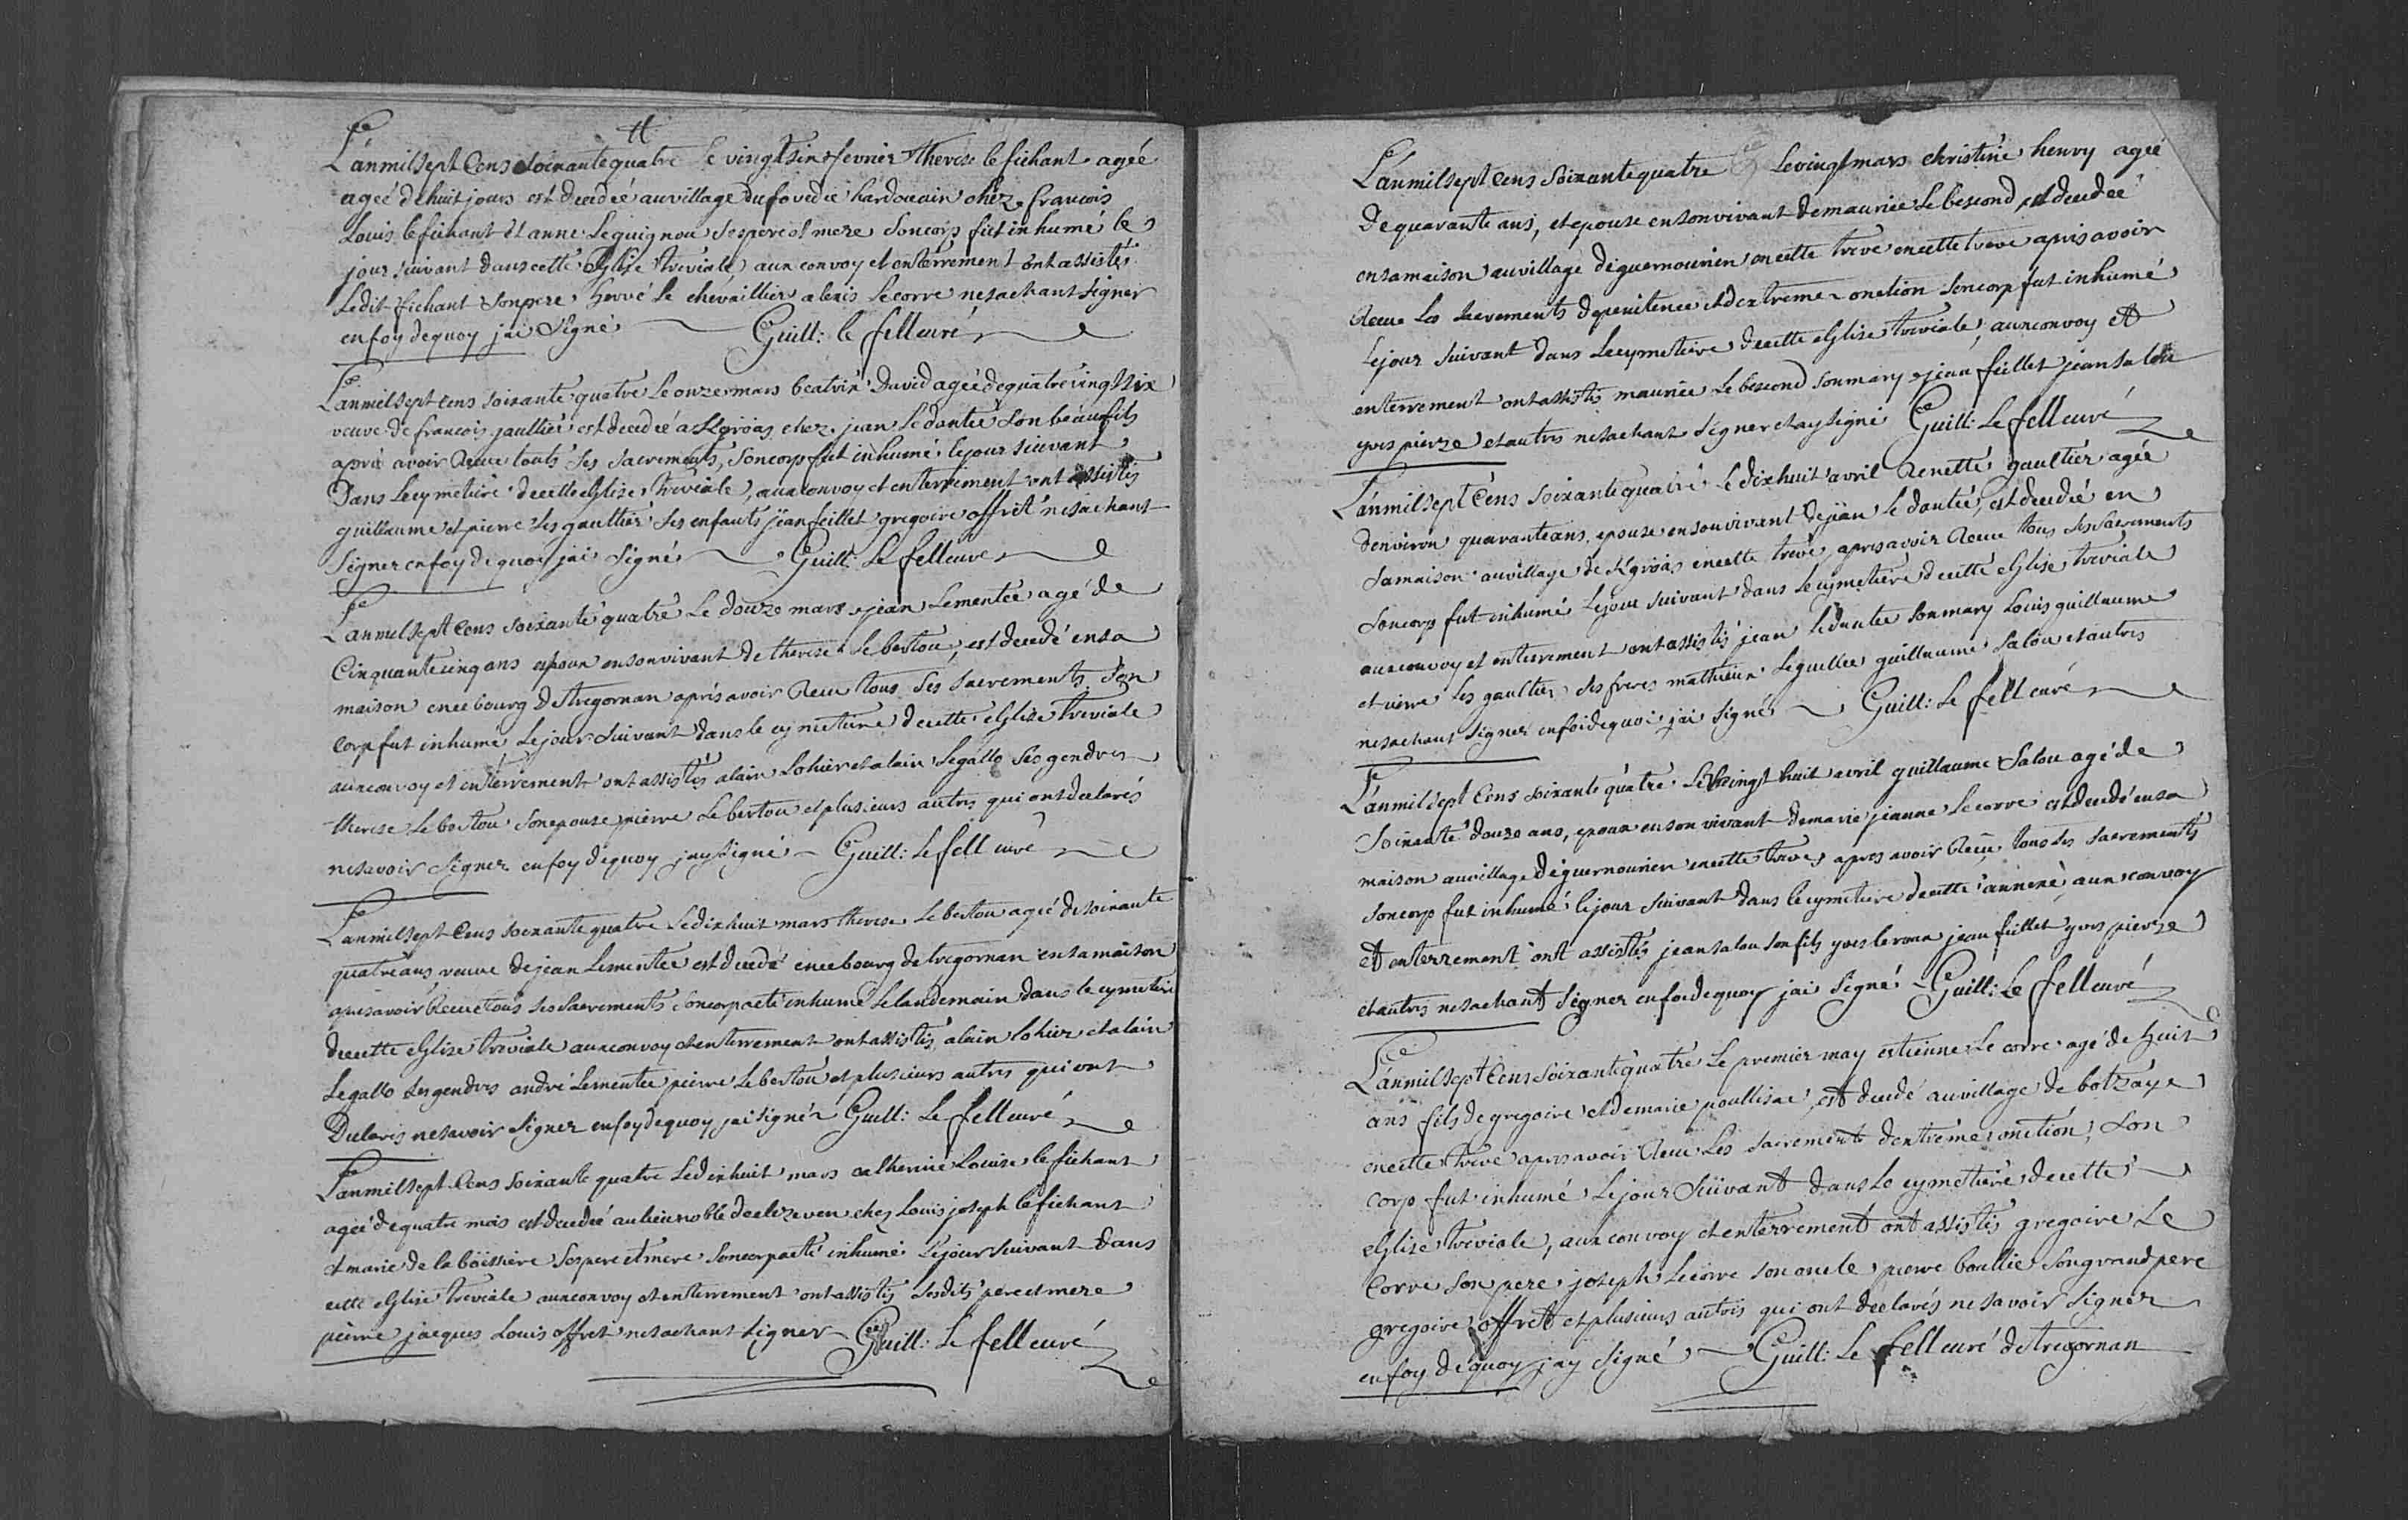 L'an mil sept Cens soixante quatre le vingt six fevrier therese le fichant agéé
agéé de huit jours est decedéé au village du hardouain chez francois
Louis le fichant et anne Leguignou ses pere et mere son corp fut inhumé le
jour suivant dans cette Eglise treviale aux convoy et enterrement ont assistés
Ledit fichant son pere hervé le chevaillier alexis le corre ne sachant signer
en foy de quoy jai signé Guill: le fell curé
L'an mil sept cens soixante quatre le onze mars beatrix David agéé de quatre vingt six
veuve de francois gaultier est decedéé a Kgroas chez jean le dantec son beaufils
aprés avoir Recue touts ses sacrements, son corp fut inhumé le jour suivant
Dans le cymetiere de cette eglise treviale, aux convoy et enterrement ont assistés
guillaume et pierre les gaultier ses enfants jean feillet gregoire offret ne sachant
signer en foy de quoy jai signé Guill: Le fell curé
L'an mil sept Cens soixante quatre Le douze mars jean Lementec agé de
Cinquante cinq ans epoux en son vivant de therese Le bertou, est decedé en sa
maison en ce bourg de tregornan aprés avoir Recu tous ses sacrements son
corp fut inhumé Le jour suivant dans le cymetiere de cette eglise treviale
aux convoy et enterrement ont assistés alain Lohier et alain Le gallo ses gendres
therese Le bertou son epouse pierre Le bertou et plusieurs autres qui ont declarés
ne savoir signer en foy de quoy jay signé Guill: Le fell curé
L'an mil sept Cens soixante quatre Le dix huit mars therese Le bertou agéé de soixante
quatre ans veuve de jean Lementec est decedé en ce bourg de tregornan en sa maison
apres avoir Recue tous ses sacrements son corp a eté inhumé Le landemain dans le cymetiere
de cette eglise treviale aux convoy et enterrement ont assistés alain lohier et alain
Le gallo ses gendres andré Lementec pierre Le bertou et plusieurs autres qui ont
Declarés ne savoir signer en foy de quoy jai signé Guill: Le fell curé
L'an mil sept Cens soixante quatre Le dix huit mars catherine Louise le fichant
agéé de quatre mois est decedéé au lieu noble de chez Louis joseph le fichant
et marie de la boissiere ses pere et mere son corp a eté inhumé Le jour suivant dans
cette eglise treviale aux convoy et enterrement ont assistés Lesdits pere et mere
pierre jacques Louis offret ne sachant signer Guill: Le fell curé
L'an mil sept Cens soixante quatre Le vingt mars christine henry agéé
De quarante ans, et epouse en son vivant de maurice Le bescond, est decedéé
en sa maison au village de guernourien en cette treve en cette treve aprés avoir
Recue Les sacrements de penitence et d'extreme onction son corp fut inhumé
Le jour suivant dans Le cymetiere de cette eglise treviale, aux convoy et
enterrement ont assistés maurice Le bescond son mary jean feillet jean salou
yves pierre et autres ne sachant signer et ay signé Guill: Le fell curé
L'an mil sept Cens soixante quatre Le dix huit avril Renette gaultier agéé
d'environ quarante ans, epouse en son vivant de jean Le dantec, est decedéé en
sa maison au village de Kgroas en cette treve, apres avoir Recue tous ses sacrements
son corp fut inhumé Le jour suivant dans Le cymetiere de cette eglise treviale
aux convoy et enterrement ont assistés jean Ledantec son mary Louis guillaume
et pierre Les gaultier ses freres mathieu Leguellec guillaume salou et autres
ne sachant signer en foi de quoi jai signé Guill: Le fell curé
L'an mil sept Cens soixante quatre Le vingt huit avril guillaume salou agé de
soixante douze ans, epoux en son vivant de marie jeanne Le corre est decedé en sa
maison au village de guernourien en cette treve apres avoir Recu tous ses sacrements
son corp fut inhumé le jour suivant dans le cymetiere de cette annexe, aux convoy
et enterrement ont assistés jean salou son fils yves le roux jean feillet yves pierre
et autres ne sachant signer en foi de quoy jai signé Guill: Le fell curé
L'an mil sept Cens soixante quatre Le premier may estienne Le corre agé de huit
ans fils de gregoire et de marie poullisac est decedé au village de botzaye
en cette treve apres avoir Recu Les sacrements d'extreme onction, son
corp fut inhumé Le jour suivant dans Le cymetiere de cette
eglise treviale, aux convoy et enterrement ont assistés gregoire Le
Corre son pere, joseph Lecorre son oncle pierre boullic son grand pere
gregoire offret et plusieurs autres qui ont declarés ne savoir signer
en foy de quoy jay signé Guill: Le fell curé de tregornan